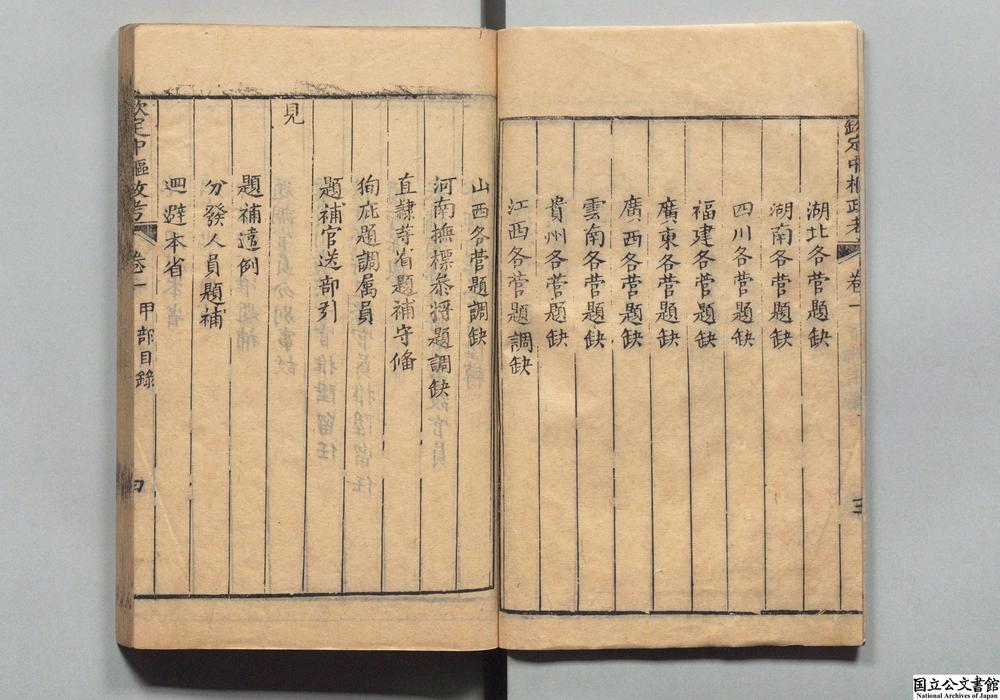 欽定中樞政考 卷一 三
湖北各營題缺
湖南各營題缺
四川各營題缺
福建各營題缺
廣東各營題缺
廣西各營題缺
雲南各營題缺
貴州各營題缺
江西各營題調缺
山西各營題調缺
河南撫標叅將題調缺
直隸等省題補守俻
徇庇題調属員
題補官送部引
見
題補違例
分發人員題補
迴避本省
欽定中樞政考 卷一 甲部目錄 四
国立公文書館
National Archives of Japan